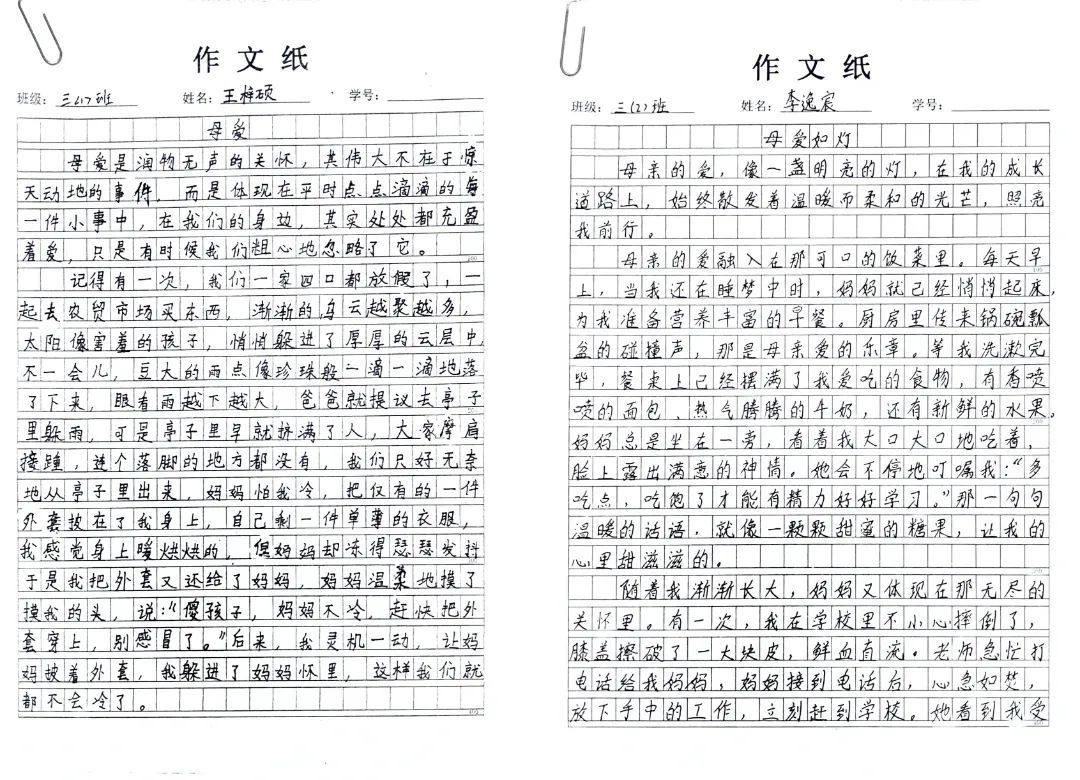 作文纸
班级：三(1)班 姓名：王梓硕 学号：
母爱
母爱是润物无声的关怀，其伟大不在于惊
天动地的事件，而是体现在平时点点滴滴的每
一件小事中，在我们的身边，其实处处都充盈
着爱，只是有时候我们粗心地忽略了它。
记得有一次，我们一家四口都放假了，一
起去农贸市场买东西，渐渐的乌云越聚越多，
太阳像害羞的孩子，悄悄躲进了厚厚的云层中
不一会儿，豆大的雨点像珍珠般一滴一滴地落
了下来，眼看雨越下越大，爸爸就提议去亭子
里躲雨，可是亭子里早就挤满了人，大家摩肩
接踵，连个落脚的地方都没有，我们只好无奈
地从亭子里出来，妈妈怕我冷，把仅有的一件
外套披在了我身上，自己剩一件单薄的衣服，
我感觉身上暖烘烘的，但妈妈却冻得瑟瑟发抖
于是我把外套又还给了妈妈，妈妈温柔地摸了
摸我的头，说：“傻孩子，妈妈不冷，赶快把外
套穿上，别感冒了。”后来，我灵机一动，让妈
妈披着外套，我躲进了妈妈怀里，这样我们就
都不会冷了。
作文纸
班级：三(2)班 姓名：李逸宸 学号：
母爱如灯
母亲的爱，像一盏明亮的灯，在我的成长
道路上，始终散发着温暖而柔和的光芒，照亮
我前行。
母亲的爱融入在那可口的饭菜里。每天早
上，当我还在睡梦中时，妈妈就已经悄悄起床，
为我准备营养丰富的早餐。厨房里传来锅碗瓢
盆的碰撞声，那是母亲爱的乐章。等我洗漱完
毕，餐桌上已经摆满了我爱吃的食物，有香喷
喷的面包、热气腾腾的牛奶，还有新鲜的水果。
妈妈总是坐在一旁，看着我大口大口地吃着，
脸上露出满意的神情。她会不停地叮嘱我：“多
吃点，吃饱了才能有精力好好学习。”那一句句
温暖的话语，就像一颗颗甜蜜的糖果，让我的
心里甜滋滋的。
随着我渐渐长大，妈妈又体现在那无尽的
关怀里。有一次，我在学校里不小心摔倒了，
膝盖擦破了一大块皮，鲜血直流。老师急忙打
电话给我妈妈，妈妈接到电话后，心急如焚，
放下手中的工作，立刻赶到学校。她看到我受